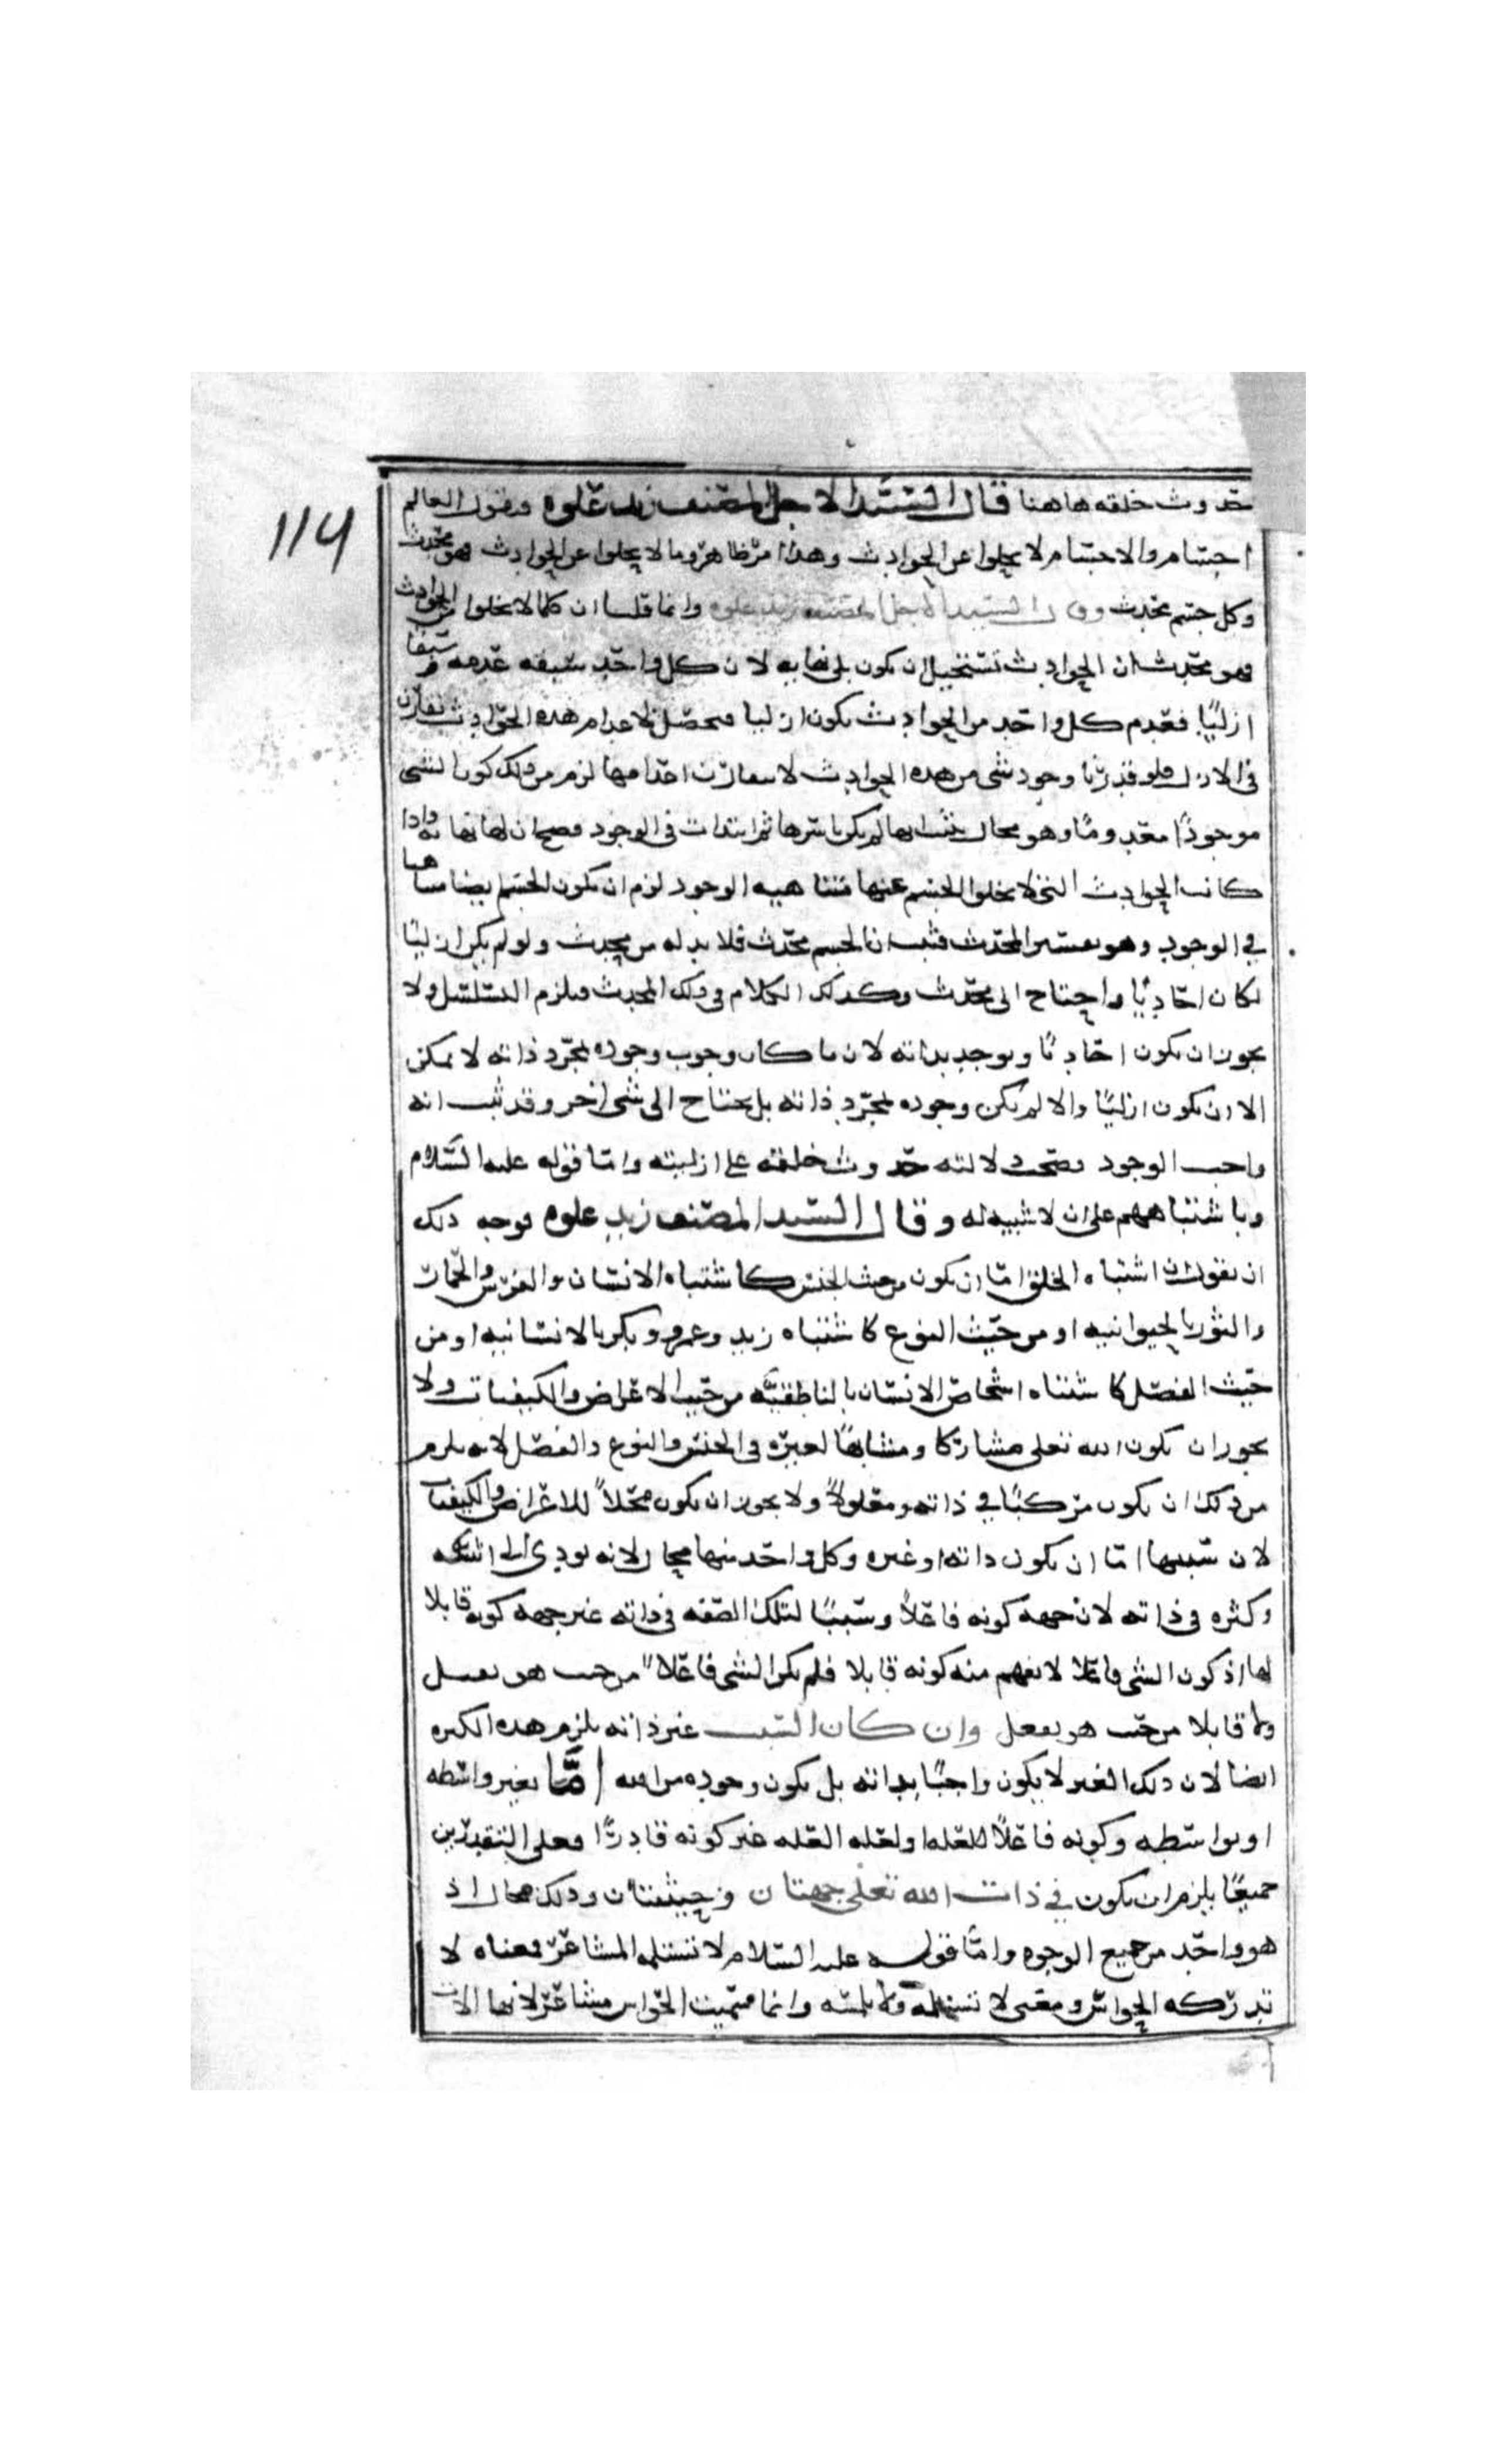 114
حدوث خلقه هاهنا قال السيد الاجل المصنف زيد علوه فنقول العالم
اجسام والاجسام لا يخلوا عن الحوادث وهذا امر ظاهر وما لا يخلوا عن الحوادث فهو محدث
وكل جسم محدث وقال السيد الاجل المصنف زيد علوه وانما قلنا ان كلما لا يخلوا من الحوادث
فهو محدث ان الحوادث تستحيل ان يكون بلى نهايه لان كل واحد سبقه عدمه سبقا
ازليًا فعدم كل واحد من الحوادث يكون ازليا فتحصل الاعدام هذه الحوادث تقارن
في الازل فلو قدرنا وجود شي من هذه الحوادث لا مقارن احدامها لزم من ذلك كون الشي
موجودًا معدومًا وهو محال فثبت انها لم يكن باسرها ثم ابتدات في الوجود فصح ان لها نهايه واذا
كانت الحوادث التي لا يخلوا الجسم عنها متناهيه الوجود لزم ان يكون الجسم ايضا متناهيا
في الوجود وهو تفسير المحدث فثبت ان الجسم محدث فلا بد له من محدث ولو لم يكن ازليًا
لكان احاديًا واحتاج الى محدث وكذلك الكلام في ذلك المحدث فيلزم التسلسل ولا
يجوز ان يكون احاديًا ويوجد بذاته لان ما كان وجوب وجوده لمجرد ذاته لا يمكن
الا ان يكون ازليًا والا لم يكن وجوده لمجرد ذاته بل يحتاج الى شي اخر وقد ثبت انه
واجب الوجود فصحت دلالته حدوث خلقه على ازليته واما قوله عليه السلام
وباشتباههم على ان لا شبيه له وقال السيد المصنف زيد علوه فوجه ذلك
ان يقول ان اشتباه الخلق اما ان يكون من حيث الجنس كاشتباه الانسان والفرس والحمار
والثور بالحيوانيه او من حيث النوع كاشتباه زيد وعمرو وبكر بالانسانيه او من
حيث الفصل كاشتباه اشخاص الانسان بالناطقيه من حيث الاعراض والكيفيات ولا
يجوز ان يكون الله تعلى مشاركا ومشابهًا لغيره في الجنس والنوع والفصل لانه يلزم
من ذلك ان يكون مركبًا في ذاته ومعلولاً ولا يجوز ان يكون محلاً للاعراض والكيفيات
لان سببها اما ان يكون ذاته او غيره وكل واحد منها محال لانه يودي الى اثنينيه
وكثره في ذاته لان جهة كونه فاعلاً وسببًا لتلك الصفه في ذاته غير جهة كونه قابلا
لها اذ كون الشي فاعلا لا يفهم منه كونه قابلا فلم يكن الشي فاعلاً من حيث هو يقبل
ولا قابلا من حيث هو يفعل وان كان السبب غير ذاته يلزم هذه الكثره
ايضا لان ذلك الغير لا يكون واجبًا بذاته بل يكون وجوده من الله اما بغير واسطه
او بواسطه وكونه فاعلاً للعله او لعله العله غير كونه قادرًا فعلى التقديرين
جميعًا يلزم ان يكون في ذات الله تعلى جهتان وحيثيتان وذلك محال اذ
هو واحد من جميع الوجوه واما قوله عليه السلام لا تستلمه المشاعر فمعناه لا
تدركه الحواس ومعنى لا تستلمه ولا تلمسه وانما سميت الحواس مشاعر لانها الات